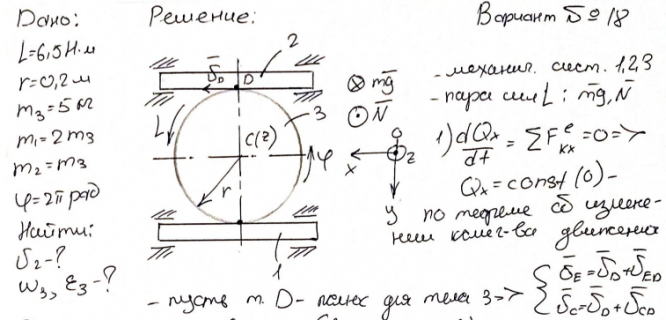 Дано:
L=6,5 Н·м
r=0,2 м
m₃=5 кг
m₁=2m₃
m₂=m₃
φ=2π рад
Найти:
υ₂-?
ω₃, ε₃-?
Решение:
Вариант №18
2
ῡ_D D
3
L
C(z)
φ
r
1
⊗ mḡ
⊙ N̄
O
z
x
y
- механич. сист. 1,2,3
- пара сил L; mḡ, N̄
1) dQₓ/dt = ΣFᵉₖₓ = 0 =>
Qₓ = const (0) -
по теореме об измене-
нии колич-ва движения
- пусть т. D - полюс для тела 3 =>
{ ῡ_E = ῡ_D + ῡ_ED
ῡ_C = ῡ_D + ῡ_CD